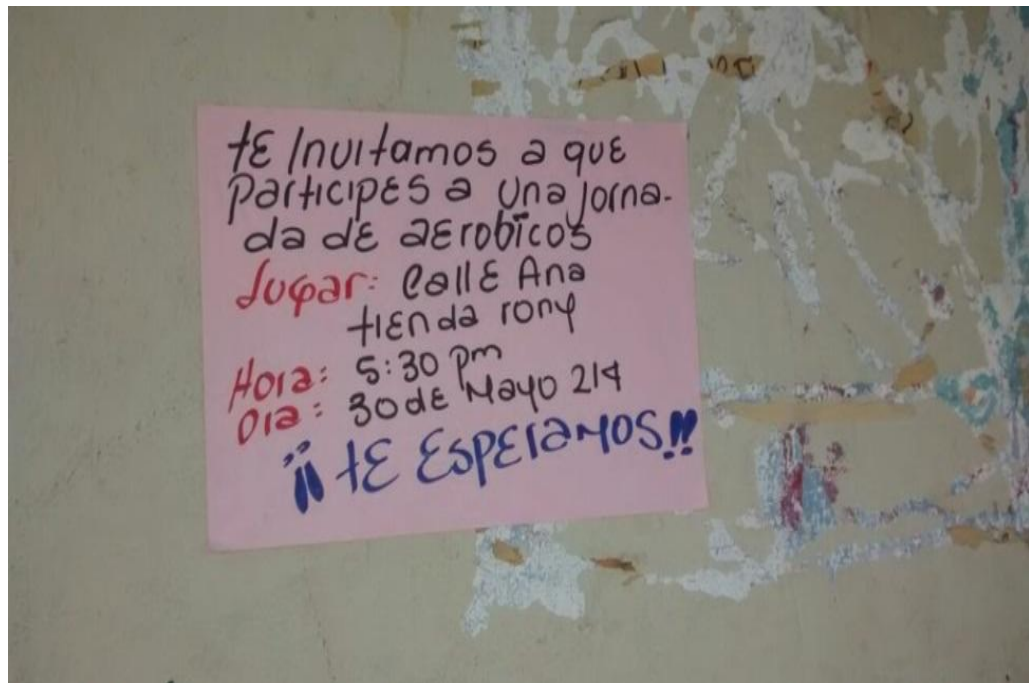 tE Invitamos a quE
participEs a una jorna-
da dE aErobicos
Lugar: callE Ana
tiEnda rony
Hora: 5:30 pm
Dia: 30 dE Mayo 214
¡¡tE EspEramos!!